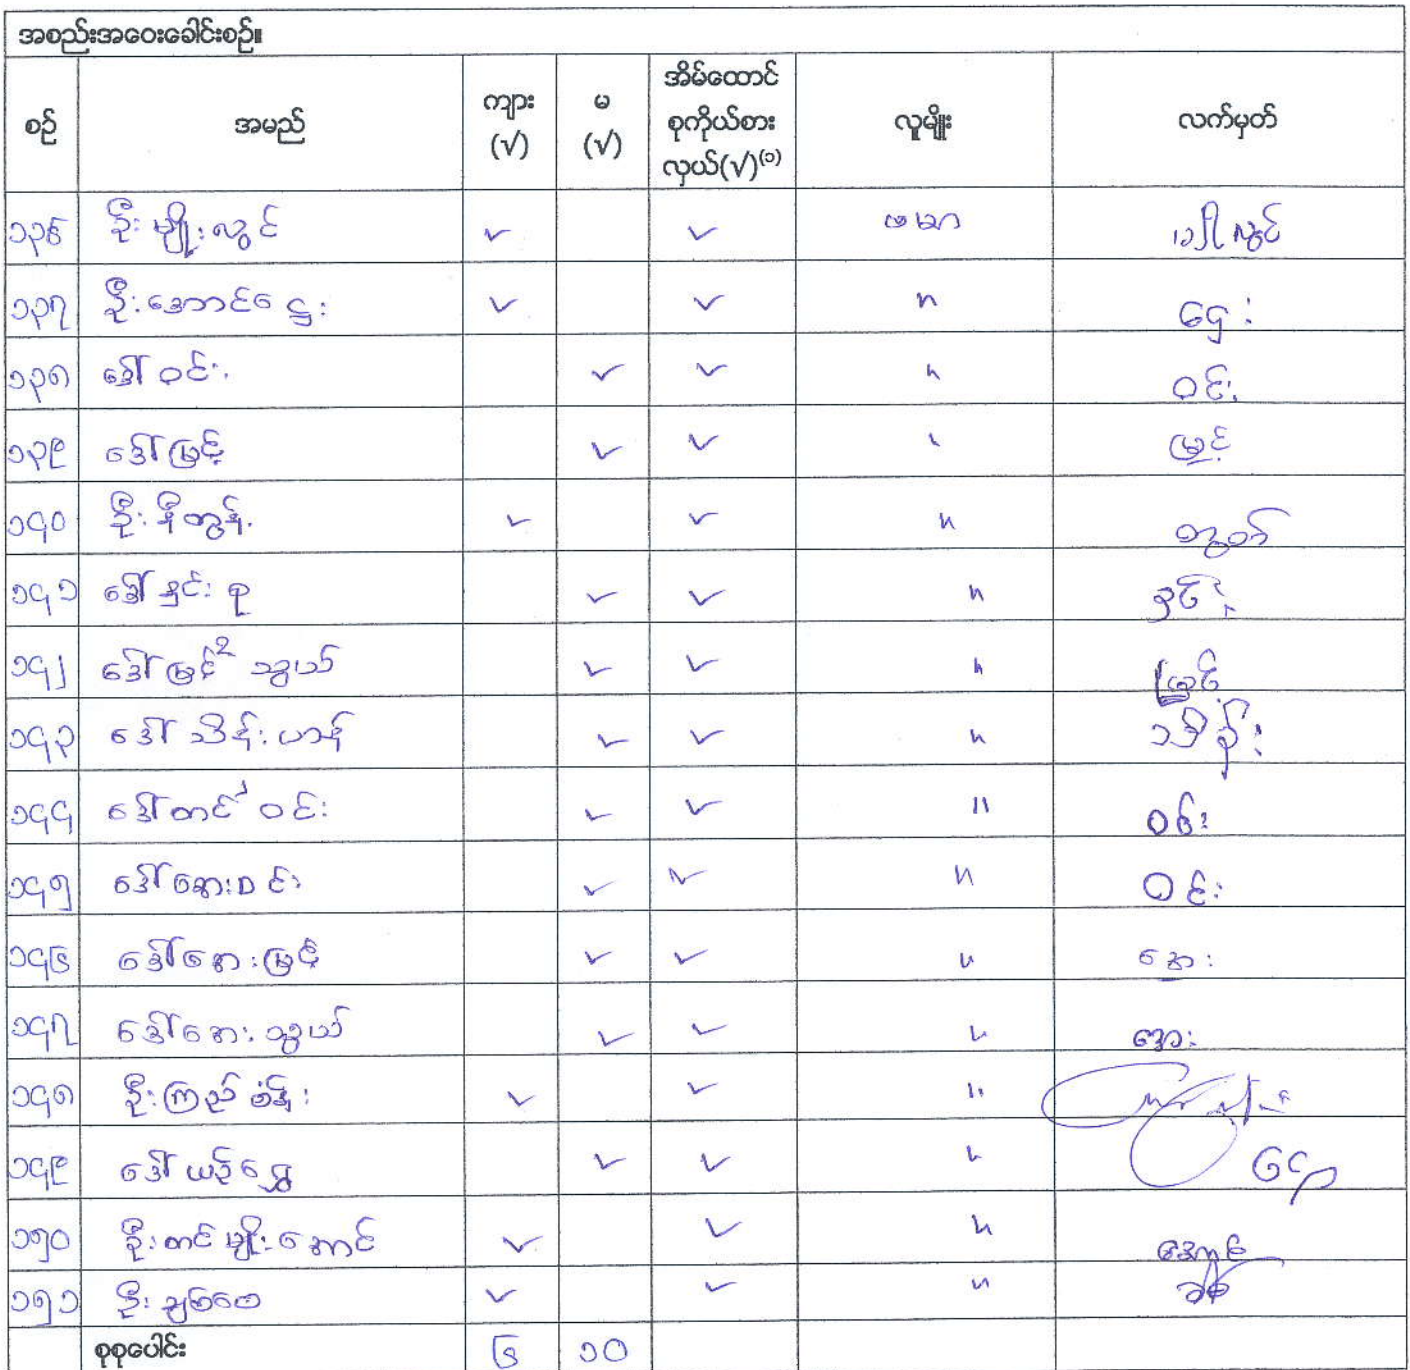 အစည်းအဝေးခေါင်းစဉ်။
စဉ် အမည် ကျား (√) မ (√) အိမ်ထောင်စုကိုယ်စားလှယ်(√)⁽¹⁾ လူမျိုး လက်မှတ်
၁၃၆ ဦးမျိုးလွင် ✓ ✓ ဗမာ လွင်
၁၃၇ ဦးအောင်ဌေး ✓ ✓ " ဌေး
၁၃၈ ဒေါ်ဝင်း ✓ ✓ " ဝင်း
၁၃၉ ဒေါ်မြင့် ✓ ✓ " မြင့်
၁၄၀ ဦးနီတွန် ✓ ✓ "
၁၄၁ ဒေါ်နှင်းစု ✓ ✓ " နှင်း
၁၄၂ ဒေါ်မြင့်၂ သွယ် ✓ ✓ " မြင့်
၁၄၃ ဒေါ်သိန်းဟန် ✓ ✓ " သိန်း
၁၄၄ ဒေါ်တင်ဝင်း ✓ ✓ " ဝင်း
၁၄၅ ဒေါ်ဆေးဝင်း ✓ ✓ " ဝင်း
၁၄၆ ဒေါ်အေးမြင့် ✓ ✓ " အေး
၁၄၇ ဒေါ်အေးသွယ် ✓ ✓ " အေး
၁၄၈ ဦးကြည်စိန် ✓ ✓ "
၁၄၉ ဒေါ်ယဉ်ရွှေ ✓ ✓ "
၁၅၀ ဦးတင်မျိုးအောင် ✓ ✓ " အောင်
၁၅၁ ဦးချစ်ဝေ ✓ ✓ " ချစ်
စုစုပေါင်း ၆ ၁၀